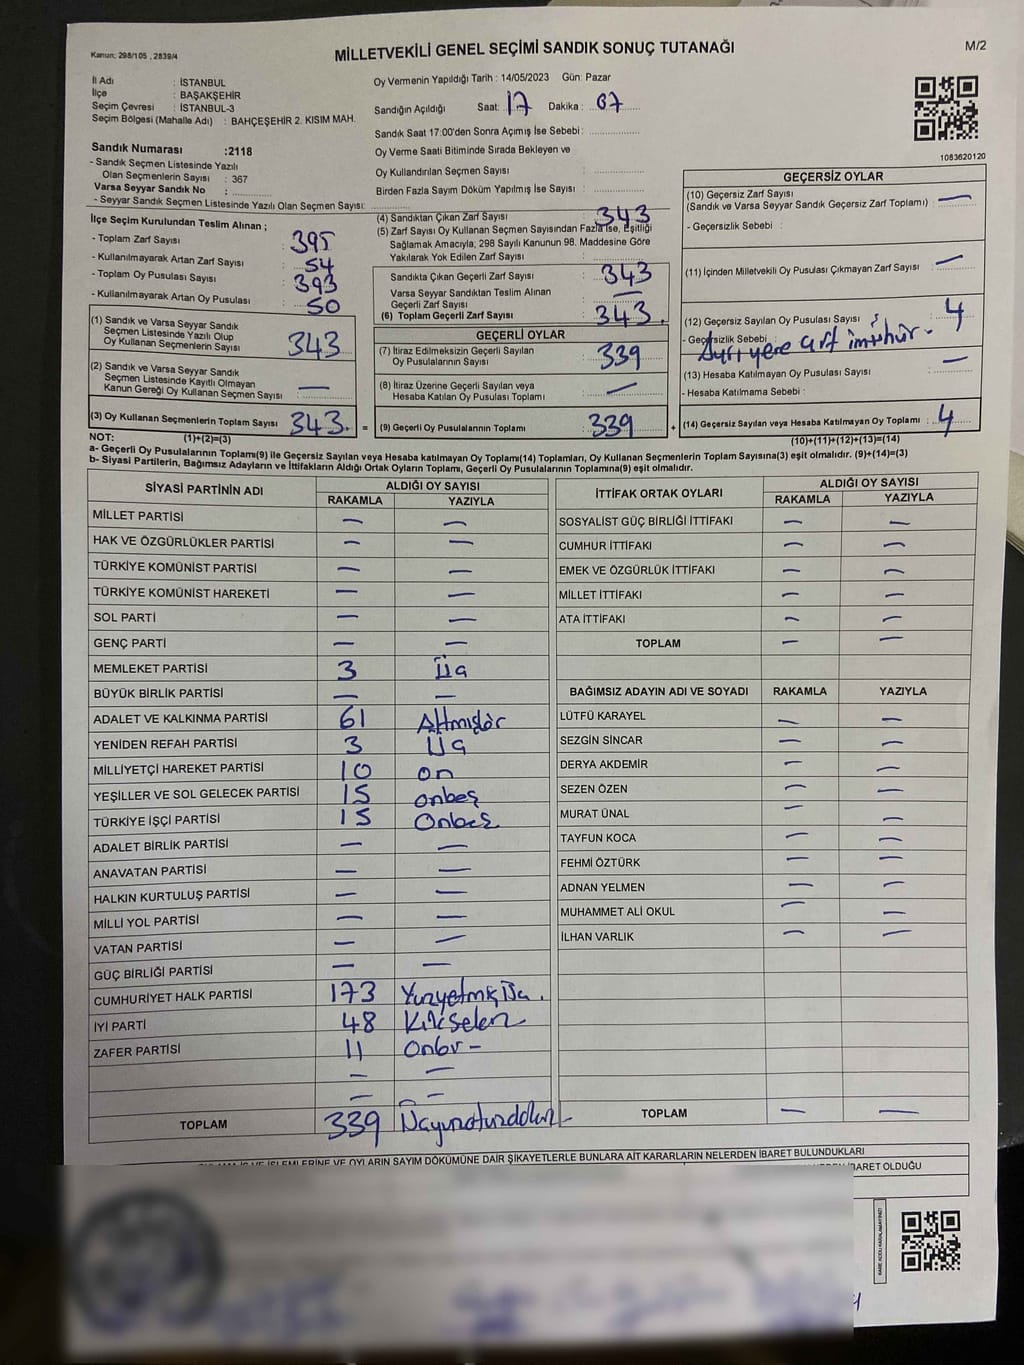 Kanun: 298/105 , 2839/4
MİLLETVEKİLİ GENEL SEÇİMİ SANDIK SONUÇ TUTANAĞI
M/2
İl Adı : İSTANBUL
İlçe : BAŞAKŞEHİR
Seçim Çevresi : İSTANBUL-3
Seçim Bölgesi (Mahalle Adı) : BAHÇEŞEHİR 2. KISIM MAH.
Sandık Numarası :2118
- Sandık Seçmen Listesinde Yazılı
Olan Seçmenlerin Sayısı : 367
Varsa Seyyar Sandık No :
- Seyyar Sandık Seçmen Listesinde Yazılı Olan Seçmen Sayısı:
Oy Vermenin Yapıldığı Tarih : 14/05/2023 Gün: Pazar
Sandığın Açıldığı Saat: 17 Dakika : 07
Sandık Saat 17:00'den Sonra Açımış İse Sebebi :
Oy Verme Saati Bitiminde Sırada Bekleyen ve
Oy Kullandırılan Seçmen Sayısı :
Birden Fazla Sayım Döküm Yapılmış İse Sayısı :
1083620120
İlçe Seçim Kurulundan Teslim Alınan ;
- Toplam Zarf Sayısı : 395
- Kullanılmayarak Artan Zarf Sayısı : 54
- Toplam Oy Pusulası Sayısı : 393
- Kullanılmayarak Artan Oy Pusulası : 50
(1) Sandık ve Varsa Seyyar Sandık
Seçmen Listesinde Yazılı Olup
Oy Kullanan Seçmenlerin Sayısı 343
(2) Sandık ve Varsa Seyyar Sandık
Seçmen Listesinde Kayıtlı Olmayan
Kanun Gereği Oy Kullanan Seçmen Sayısı : —
(3) Oy Kullanan Seçmenlerin Toplam Sayısı 343. =
(4) Sandıktan Çıkan Zarf Sayısı 343
(5) Zarf Sayısı Oy Kullanan Seçmen Sayısından Fazla ise, Eşitliği
Sağlamak Amacıyla, 298 Sayılı Kanunun 98. Maddesine Göre
Yakılarak Yok Edilen Zarf Sayısı
Sandıkta Çıkan Geçerli Zarf Sayısı : 343
Varsa Seyyar Sandıktan Teslim Alınan
Geçerli Zarf Sayısı : —
(6) Toplam Geçerli Zarf Sayısı : 343.
GEÇERLİ OYLAR
(7) İtiraz Edilmeksizin Geçerli Sayılan
Oy Pusulalarının Sayısı : 339
(8) İtiraz Üzerine Geçerli Sayılan veya
Hesaba Katılan Oy Pusulası Toplamı : —
(9) Geçerli Oy Pusulalarının Toplamı : 339 +
GEÇERSİZ OYLAR
(10) Geçersiz Zarf Sayısı
(Sandık ve Varsa Seyyar Sandık Geçersiz Zarf Toplamı) : —
- Geçersizlik Sebebi :
(11) İçinden Milletvekili Oy Pusulası Çıkmayan Zarf Sayısı : —
(12) Geçersiz Sayılan Oy Pusulası Sayısı : 4
- Geçersizlik Sebebi : Ayrı yere çift mühür -
(13) Hesaba Katılmayan Oy Pusulası Sayısı : —
- Hesaba Katılmama Sebebi :
(14) Geçersiz Sayılan veya Hesaba Katılmayan Oy Toplamı : 4
NOT: (1)+(2)=(3)
(10)+(11)+(12)+(13)=(14)
a- Geçerli Oy Pusulalarının Toplamı(9) ile Geçersiz Sayılan veya Hesaba katılmayan Oy Toplamı(14) Toplamları, Oy Kullanan Seçmenlerin Toplam Sayısına(3) eşit olmalıdır. (9)+(14)=(3)
b- Siyasi Partilerin, Bağımsız Adayların ve İttifakların Aldığı Ortak Oyların Toplamı, Geçerli Oy Pusulalarının Toplamına(9) eşit olmalıdır.
SİYASİ PARTİNİN ADI ALDIĞI OY SAYISI
RAKAMLA YAZIYLA
MİLLET PARTİSİ — —
HAK VE ÖZGÜRLÜKLER PARTİSİ — —
TÜRKİYE KOMÜNİST PARTİSİ — —
TÜRKİYE KOMÜNİST HAREKETİ — —
SOL PARTİ — —
GENÇ PARTİ — —
MEMLEKET PARTİSİ 3 Üç
BÜYÜK BİRLİK PARTİSİ — —
ADALET VE KALKINMA PARTİSİ 61 Altmışbir
YENİDEN REFAH PARTİSİ 3 Üç
MİLLİYETÇİ HAREKET PARTİSİ 10 on
YEŞİLLER VE SOL GELECEK PARTİSİ 15 onbeş
TÜRKİYE İŞÇİ PARTİSİ 15 Onbeş
ADALET BİRLİK PARTİSİ — —
ANAVATAN PARTİSİ — —
HALKIN KURTULUŞ PARTİSİ — —
MİLLİ YOL PARTİSİ — —
VATAN PARTİSİ — —
GÜÇ BİRLİĞİ PARTİSİ — —
CUMHURİYET HALK PARTİSİ 173 Yüzyetmişüç.
İYİ PARTİ 48 Kırksekiz
ZAFER PARTİSİ 11 Onbir -
— —
— —
TOPLAM 339 Üçyüzotuzdokuz -
İTTİFAK ORTAK OYLARI ALDIĞI OY SAYISI
RAKAMLA YAZIYLA
SOSYALİST GÜÇ BİRLİĞİ İTTİFAKI — —
CUMHUR İTTİFAKI — —
EMEK VE ÖZGÜRLÜK İTTİFAKI — —
MİLLET İTTİFAKI — —
ATA İTTİFAKI — —
TOPLAM — —
BAĞIMSIZ ADAYIN ADI VE SOYADI RAKAMLA YAZIYLA
LÜTFÜ KARAYEL — —
SEZGİN SİNCAR — —
DERYA AKDEMİR — —
SEZEN ÖZEN — —
MURAT ÜNAL — —
TAYFUN KOCA — —
FEHMİ ÖZTÜRK — —
ADNAN YELMEN — —
MUHAMMET ALİ OKUL — —
İLHAN VARLIK — —
TOPLAM — —
İŞLEMLERİNE VE OYLARIN SAYIM DÖKÜMÜNE DAİR ŞİKAYETLERLE BUNLARA AİT KARARLARIN NELERDEN İBARET BULUNDUKLARI
İBARET OLDUĞU